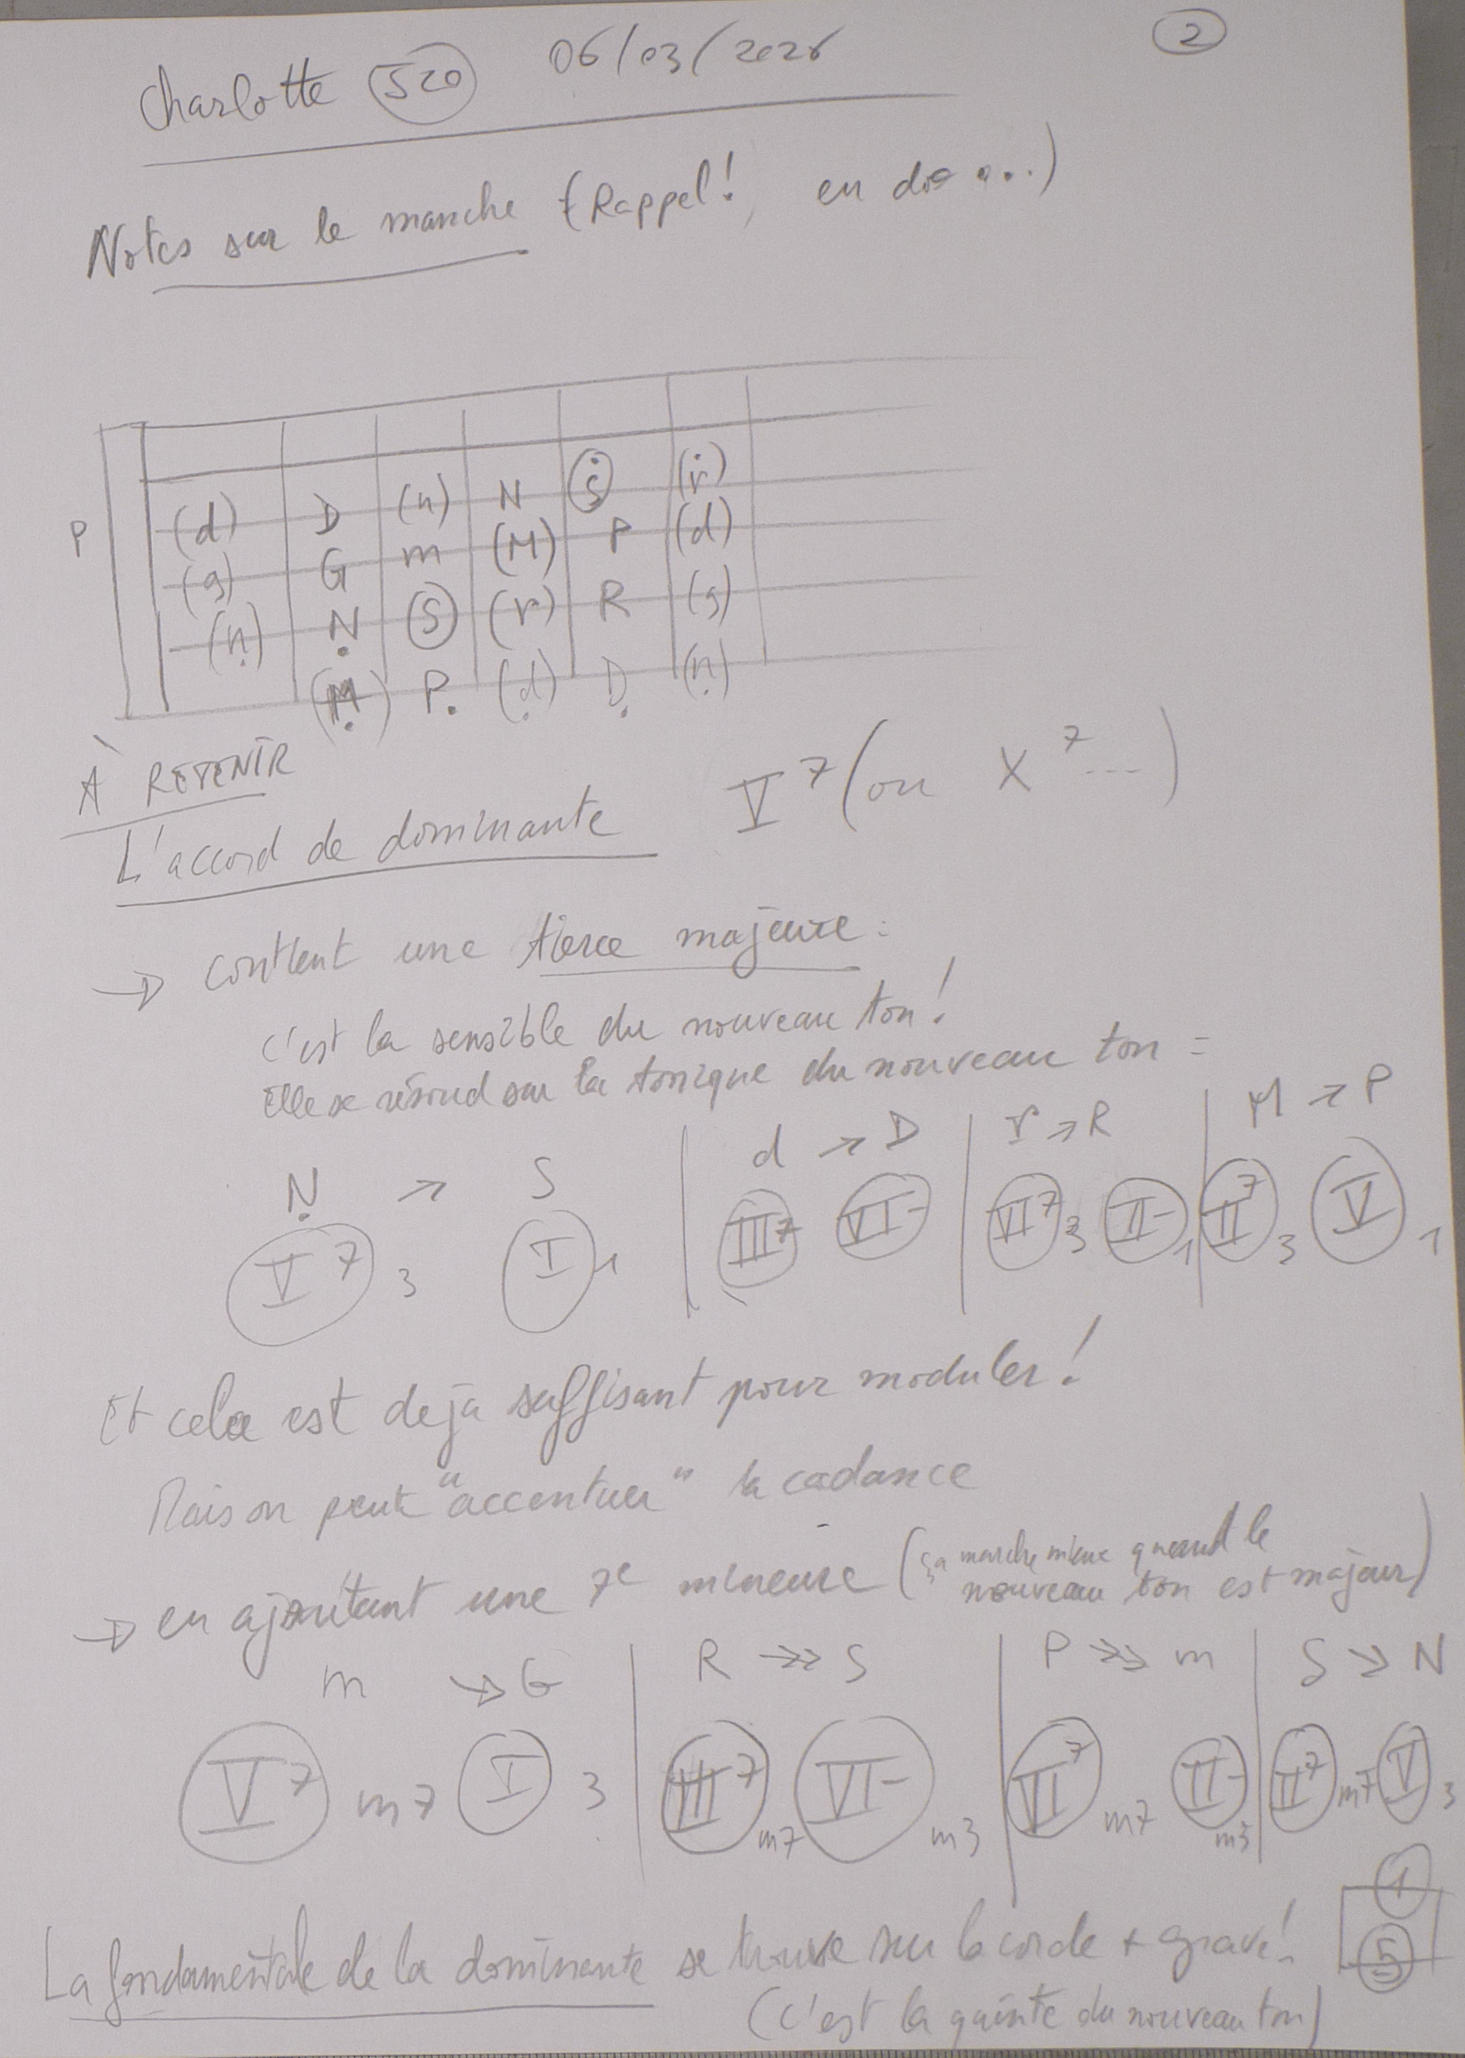 Charlotte 520 06/03/2026
2
Notes sur le manche (Rappel!, en do ...)
P
(d) D (n) N Ṡ (ṙ)
(g) G m (M) P (d)
(ṇ) Ṇ S (r) R (g)
(Ṃ) P. (ḍ) Ḍ (ṇ)
À RETENIR
L'accord de dominante V7 (ou X7...)
→ contient une tierce majeure :
c'est la sensible du nouveau ton!
Elle se résoud sur la tonique du nouveau ton =
Ṇ → S | d → D | r → R | M → P
V7 3 I 1 | III7 VI- | VII7 3 II- 1 | II7 3 V 1
Et cela est déjà suffisant pour moduler!
Mais on peut "accentuer" la cadance
→ en ajoutant une 7e mineure (ça marche mieux quand le
nouveau ton est majeur)
m → G | R →> S | P →> m | S → N
V7 m7 I 3 | III7 m7 VI- m3 | VII7 m7 II- m3 | II7 m7 V 3
La fondamentale de la dominante se trouve sur la corde + grave!
1
5
(c'est la quinte du nouveau ton)